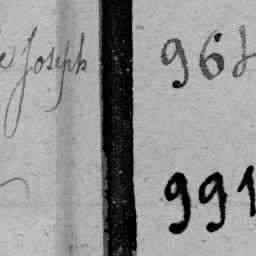 Joseph 968
991